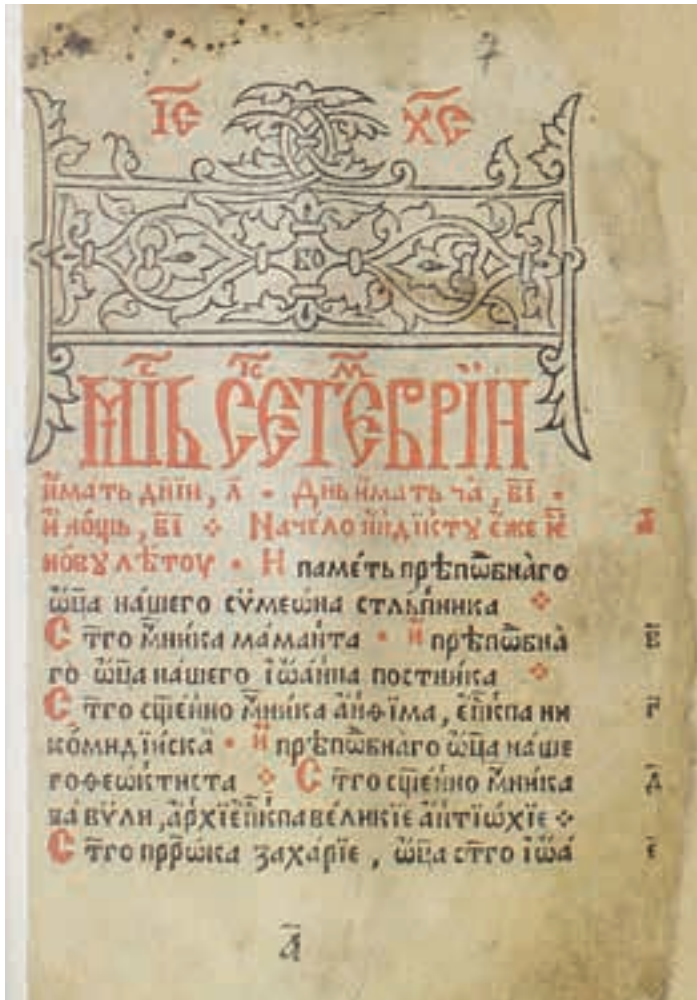 7
І҃С Х҃С
ВО
Мⷭ҇ЦЬ СЕⷫ҇ТЕⷨ҇ВРЇИ
и҆мать дни́и, л҃ • Днь и҆мать ча̑, в҃і •
и҆ но́щь, в҃і ⁘ Начело і҆ндікту е҆же к҃ а҃
но́ву лѣтоу • И паме́ть прѣпѡ́бнаго
ѡ҆ц҃а на́шего сѵ́меѡ́на стльпника ⁘
С т҃го м҃ника ма́манта • и҆ прѣпѡ́бна в҃
го ѡ҆ц҃а на́шего і҆ѡа́нна постни́ка ⁘
С т҃го сщ҃е́нно м҃ника а҆нѳі́ма, е҆пⷭ҇кпа ни г҃
коми́діиска • и҆ прѣпѡ́бнаго ѡ҆ц҃а на́ше
го ѳеѡ́ктиста ⁘ С т҃го сщ҃е́нно м҃ника д҃
вавѵ́ли, а҆рхїе҆пⷭ҇кпа вели́кїе а҆нтїѡ́хїе ⁘
С т҃го прⷪ҇рѡка заха́рїе, ѡ҆ц҃а ст҃го і҆ѡа́ е҃
а҃